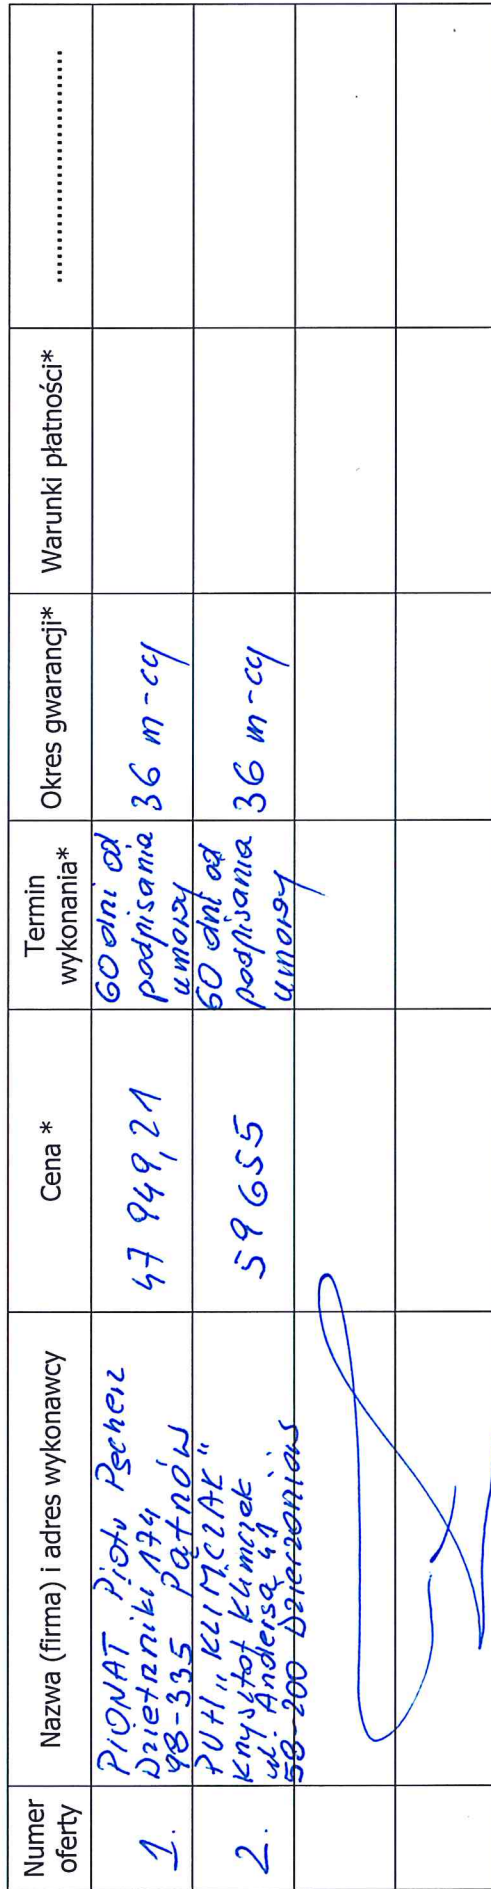 Numer oferty
Nazwa (firma) i adres wykonawcy
Cena *
Termin wykonania*
Okres gwarancji*
Warunki płatności*
....................................
1.
PIONAT Piotr Pęcherz
Dzietrzniki 174
98-335 Pątnów
47 949,21
60 dni od
podpisania
umowy
36 m-cy
2.
PUH „KLIMCZAK"
Krzysztof Klimczak
ul. Andersa 41
58-200 Dzierżoniów
59 655
60 dni od
podpisania
umowy
36 m-cy